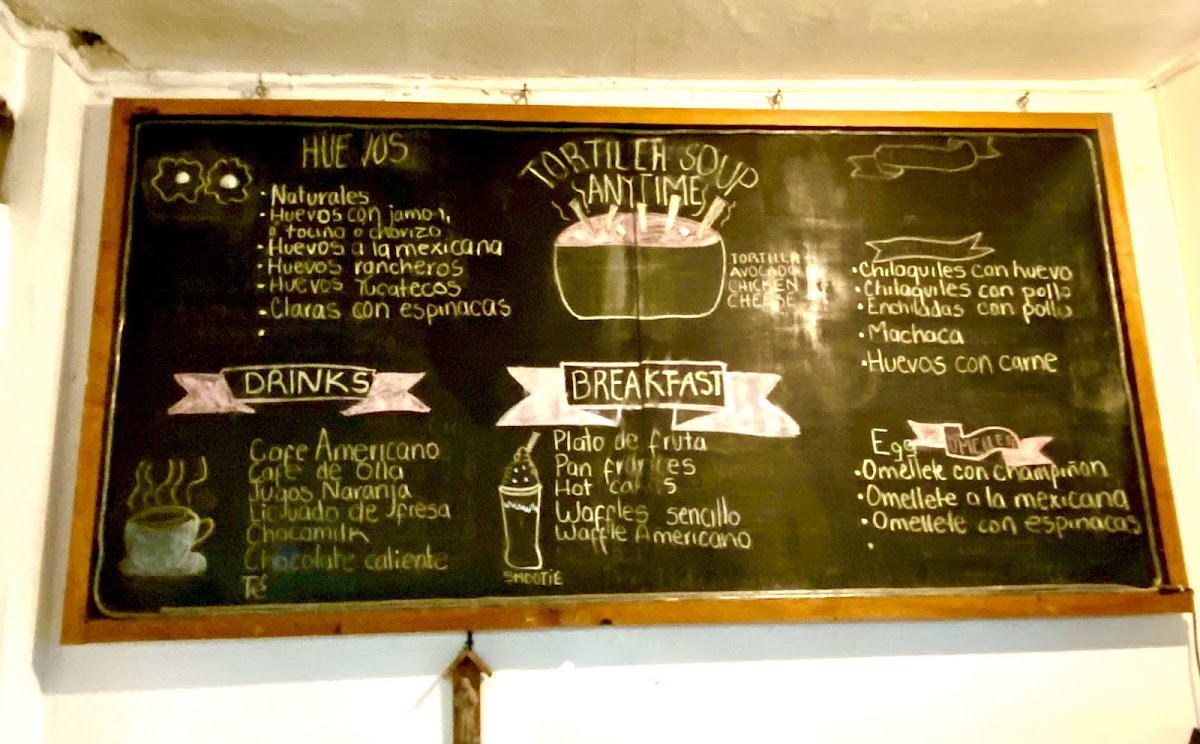 HUEVOS
• Naturales
• Huevos con jamon,
o tocino o chorizo
• Huevos a la mexicana
• Huevos rancheros
• Huevos Yucatecos
• Claras con espinacas
•
TORTILLA SOUP
ANYTIME
TORTILLA
AVOCADO
CHICKEN
CHEESE
• Chilaquiles con huevo
• Chilaquiles con pollo
• Enchiladas con pollo
• Machaca
• Huevos con carne
DRINKS
Cafe Americano
Cafe de olla
Jugos Naranja
Licuado de fresa
Chocomilk
Chocolate caliente
Té
BREAKFAST
Plato de fruta
Pan frances
Hot cakes
Waffles sencillo
Waffle Americano
SMOOTIE
Egg OMELLET
• Omellete con champiñon
• Omellete a la mexicana
• Omellete con espinacas
•